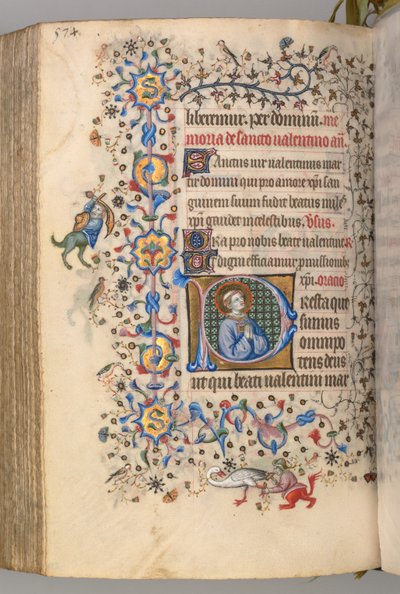 574.
liberemur. per dominū. me
moria de sancto ualentino añ.
Sanctus uir ualentinus mar
tir domini qui pro amore xp̄i san
guinem suum fudit beatus miles
xp̄i gaudet in celestibus. Vsus.
Ora pro nobis beate ualentine. R
Ut digni efficiamur promissionib;
xp̄i. oracio
Presta que
sumus
omnipo
tens deus
ut qui beati ualentini mar